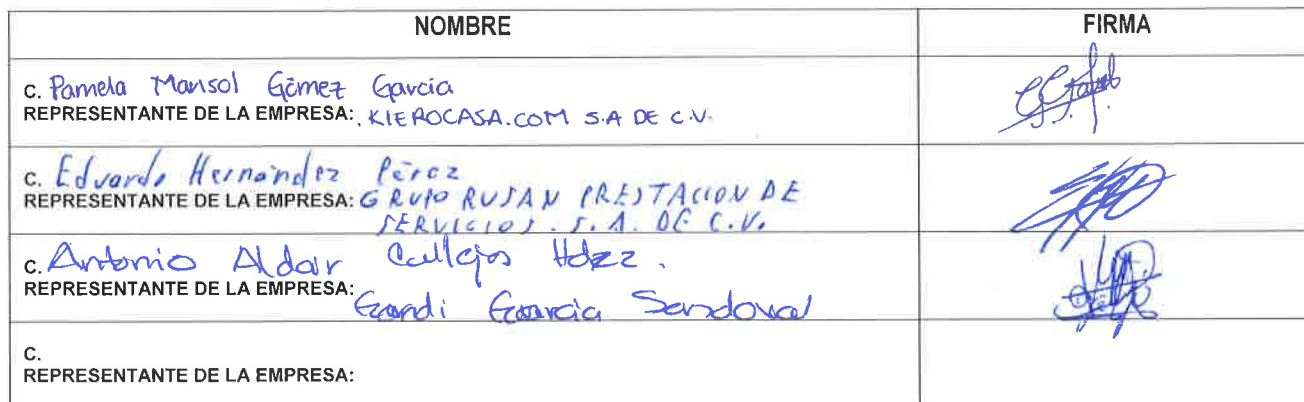 NOMBRE FIRMA
C. Pamela Marisol Gómez García
REPRESENTANTE DE LA EMPRESA: KIEROCASA.COM S.A DE C.V.
C. Eduardo Hernández Pérez
REPRESENTANTE DE LA EMPRESA: GRUPO RUSAN PRESTACION DE
SERVICIOS. S.A. DE C.V.
C. Antonio Aldair Callejas Hdzz.
REPRESENTANTE DE LA EMPRESA:
Gandi García Sandoval
C.
REPRESENTANTE DE LA EMPRESA: